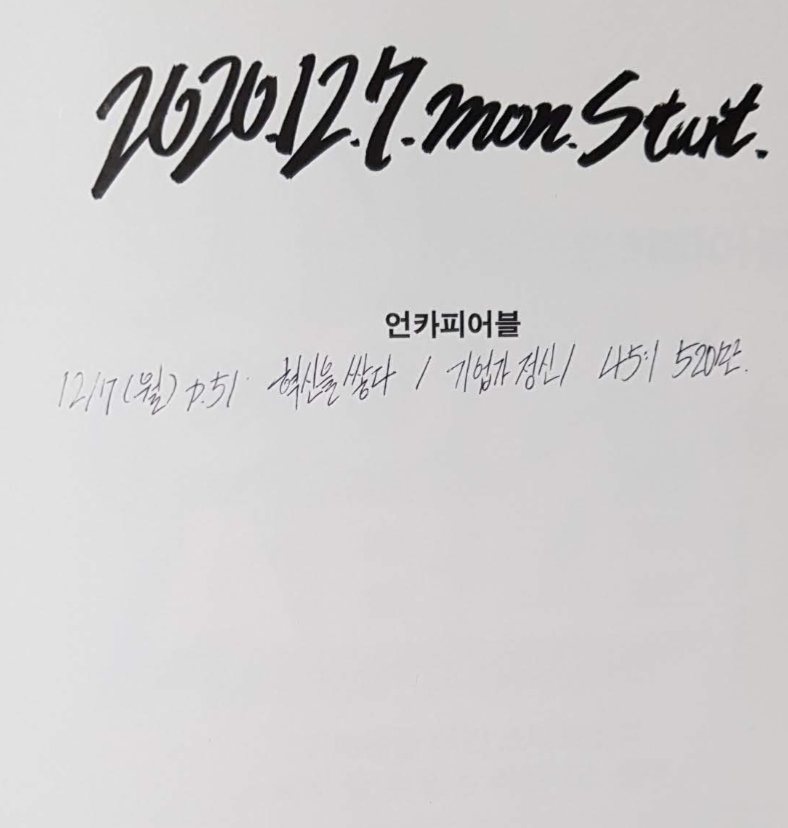 2020.12.7.mon.Start.
언카피어블
12/7(월) p.51. 혁신을 쌓다 / 기업가 정신 / 45:1 520만.